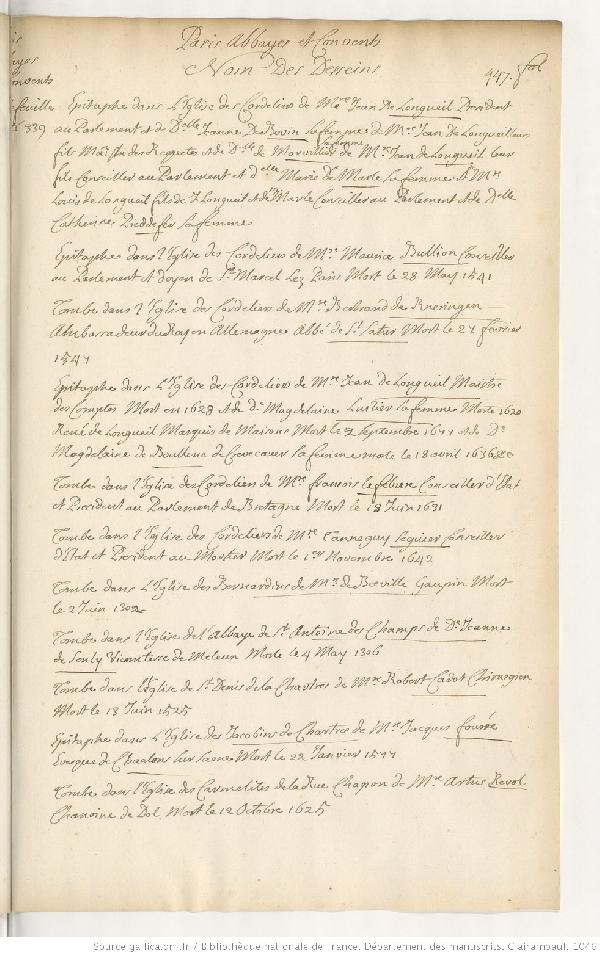 Paris Abbayes et Convents
Nom Des Desseins
447. fol
Epitaphe dans L'Eglise des Cordeliers de Mre Jean De Longueil President
au Parlement et de Delle Jeanne De Bovin sa femme de Mre Jean de Longueil leur
fils Mai des Requestes et de Dlle de Morvilliers sa femme de Mre Jean de Longueil leur
fils Conseiller au Parlement et Delle Marie de Marle sa femme et Mre
Louis de Longueil fils de J Longueil et de Marle Conseiller au Parlement et de Delle
Catherine Piedefer sa femme
Epitaphe dans l'Eglise des Cordeliers de Mre Maurice Bullion Conseiller
au Parlement et doyen de St Marcel Lez Paris Mort le 28 May 1541
Tombe dans l'Eglise des Cordeliers de Mre de
Ambassadeur du Roy en Allemagne Abbé de St Satur Mort le 27 fevrier
1547
Epitaphe dans L'Eglise des Cordeliers de Mre Jean de Longueil Maistre
des Comptes Mort en 1629 et de De Magdelaine Lustier sa femme Morte 1620
René de Longueil Marquis de Maisons Mort le 7 Septembre 1677 et de De
Magdelaine de Boullenc de Crevecoeur sa femme morte le 18 avril 1636
Tombe dans l'Eglise des Cordeliers de Mre francois le febure Conseiller d'Etat
et President au Parlement de Bretagne Mort le 18 Juin 1631
Tombe dans l'Eglise des Cordeliers de Mre Tanneguy Seguier Conseiller
d'Etat et President au Mortier Mort le 1er Novembre 1642
Tombe dans L'Eglise des Bernardins de Mre de Bieville Mort
le 2 Juin 1302
Tombe dans l'Eglise de l'Abbaye de St Antoine des Champs de De Jeanne
de Seuly Vicomtesse de Meleun Morte le 4 May 1306
Tombe dans l'Eglise de St Denis de la Chartres de Mre Robert Cadot Chirurgien
Mort le 18 Juin 1525
Epitaphe dans L'Eglise des Jacobins de Chartres de Mre Jacques fourré
Evesque de Chaalons sur saone Mort le 22 Janvier 1577
Tombe dans l'Eglise des Carmelites de la Rue Chapon de Mre Artus Revol
Chanoine de Dol Mort le 12 Octobre 1625
Source gallica.bnf.fr / Bibliothèque nationale de France. Département des manuscrits. Clairambault. 1046